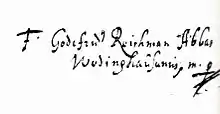 F. Godefrid9 Reichman Abbas
Wedinghusanus, m. p